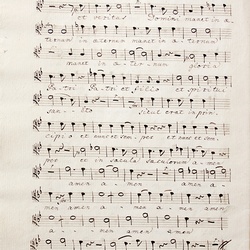 et veritas Domini manet in a-
ternum in æternum manet in æternum
manet in æter-num gloria
Patri Patri et filio et spiritui
sancto sicut erat in prin-
cipio et nunc et semper et nunc et sem-
per et in sæcula sæculorum amen
amen amen amen a-
men amen amen amen amen a-
men amen amen